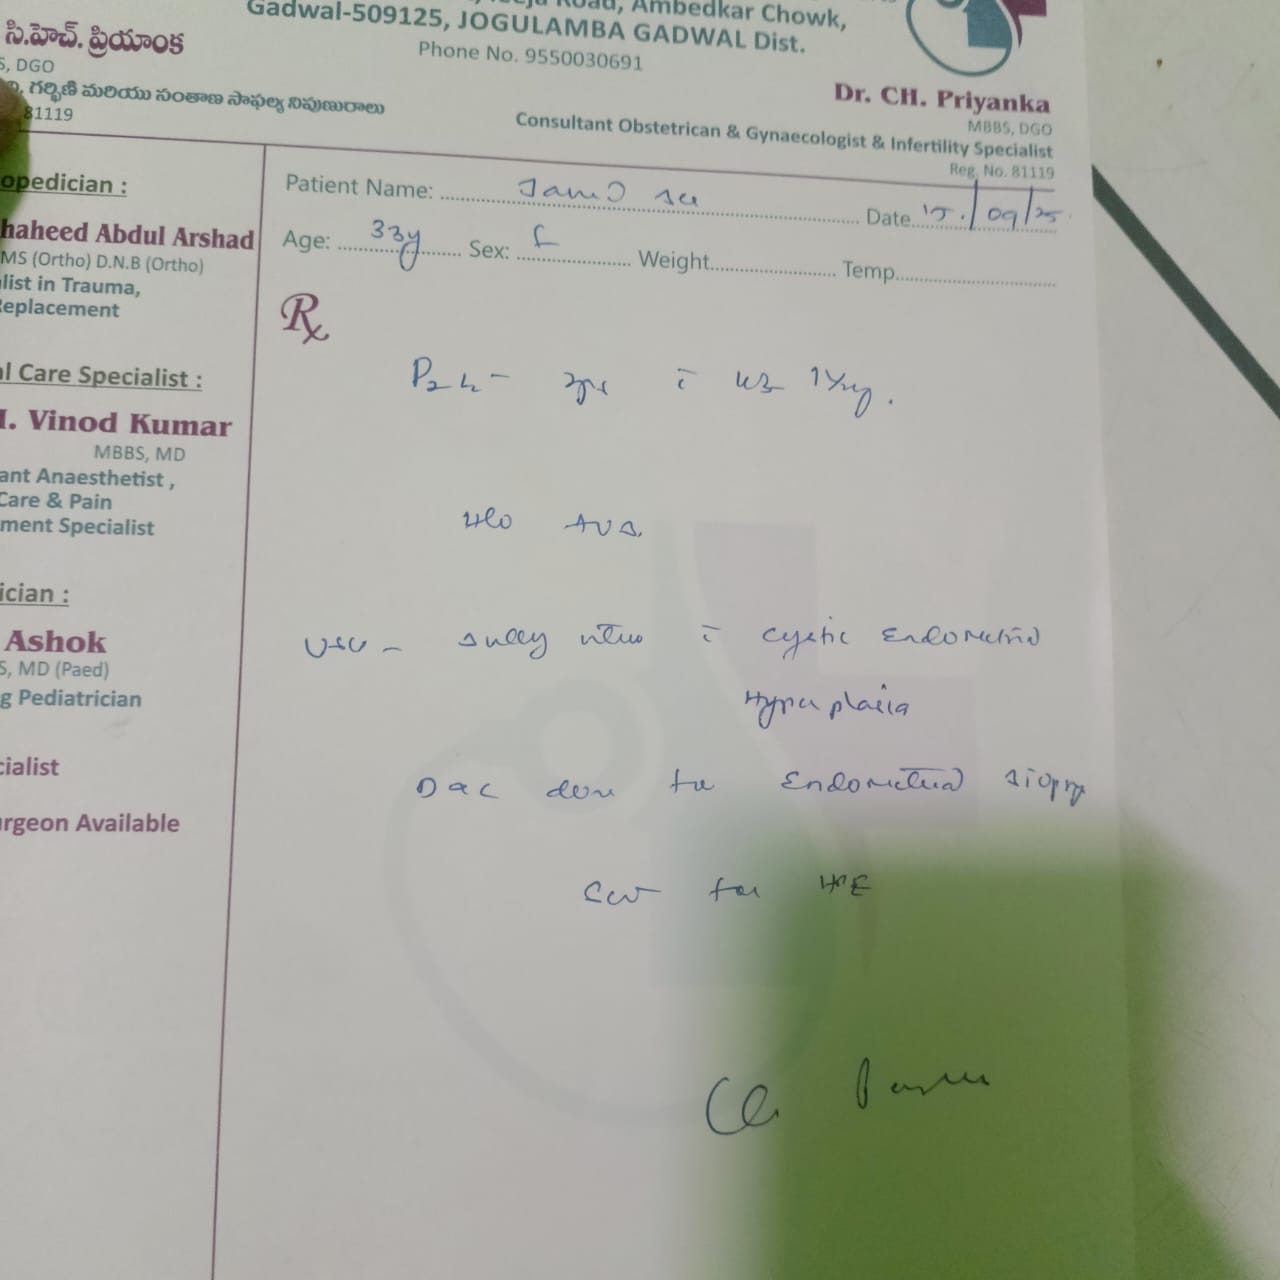 Road, Ambedkar Chowk,
Gadwal-509125, JOGULAMBA GADWAL Dist.
Phone No. 9550030691
సి.హెచ్. ప్రియాంక
S, DGO
గర్భిణి మరియు సంతాణ సాఫల్య నిపుణురాలు
81119
Dr. CH. Priyanka
MBBS, DGO
Consultant Obstetrican & Gynaecologist & Infertility Specialist
Reg. No. 81119
opedician :
haheed Abdul Arshad
MS (Ortho) D.N.B (Ortho)
list in Trauma,
Replacement
l Care Specialist :
I. Vinod Kumar
MBBS, MD
ant Anaesthetist ,
Care & Pain
ment Specialist
ician :
Ashok
S, MD (Paed)
g Pediatrician
cialist
urgeon Available
Patient Name: Date 15/09/25
Age: 33y Sex: f Weight Temp
Rx
P2L2 -
H/o AUB.
USG - Bulky uterus c̄ cystic Endometrial
Hyperplasia
D&C done for Endometrial Biopsy
Sent for HPE